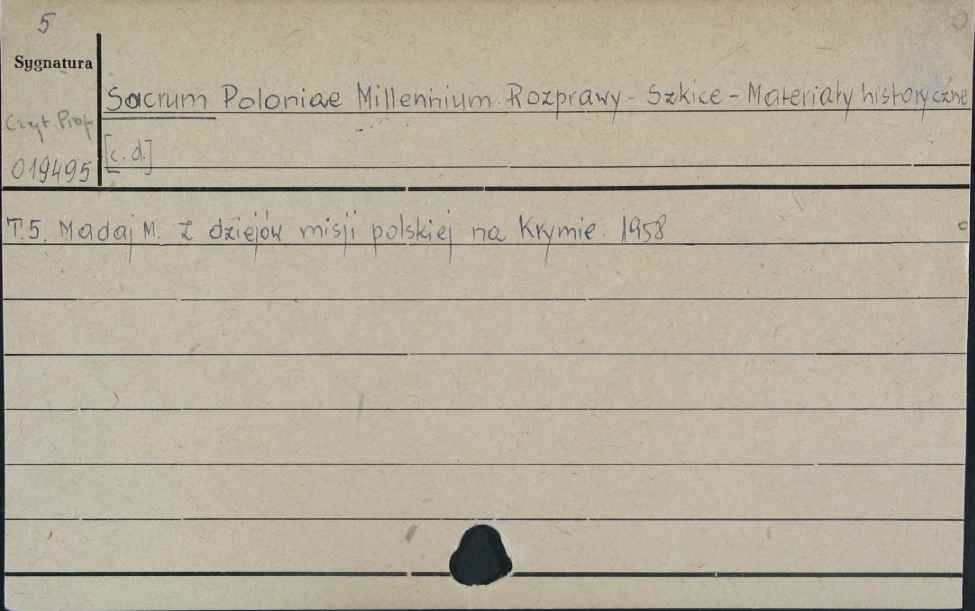 5
Sygnatura
Sacrum Poloniae Millennium. Rozprawy - Szkice - Materiały historyczne
Czyt. Prof
019495
[c. d.]
T.5. Madaj M. Z dziejów misji polskiej na Krymie. 1958